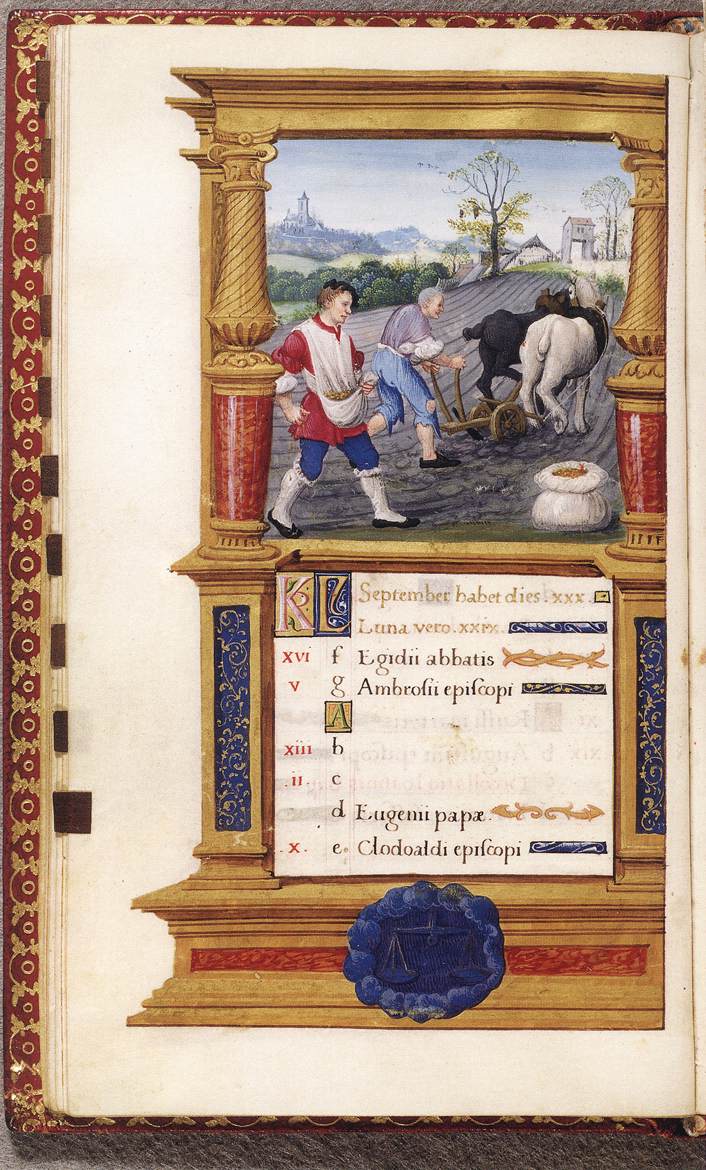 KL September habet dies .xxx.
Luna vero .xxix.
xvi f Egidii abbatis
v g Ambrosii epiſcopi
A
xiii b
.ii. c
d Eugenii papæ
.x. e. Clodoaldi epiſcopi